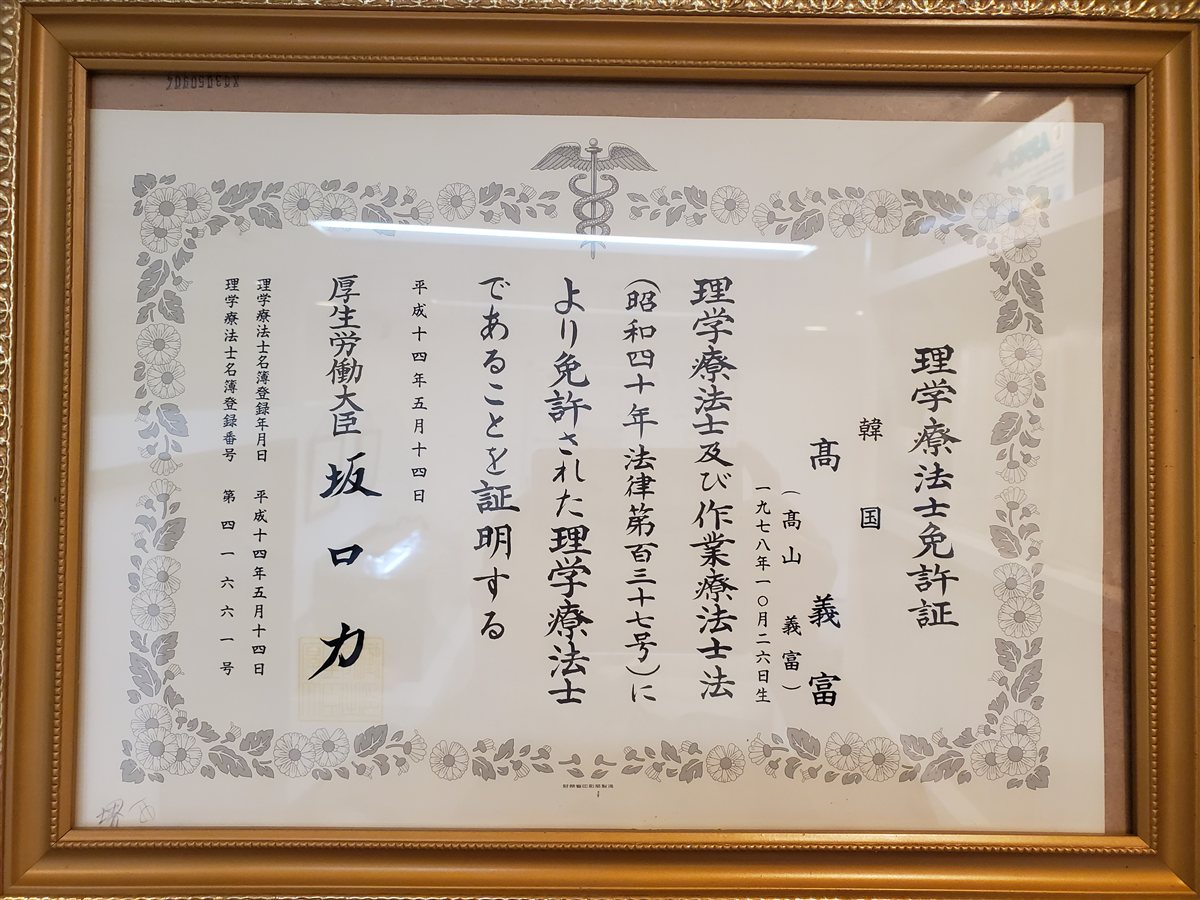 理学療法士免許証
韓国
髙義富
(髙山義富)
一九七八年一〇月二六日生
理学療法士及び作業療法士法
(昭和四十年法律第百三十七号)に
より免許された理学療法士
であることを証明する
平成十四年五月十四日
厚生労働大臣 坂口力
理学療法士名簿登録年月日 平成十四年五月十四日
理学療法士名簿登録番号 第四一六六一号